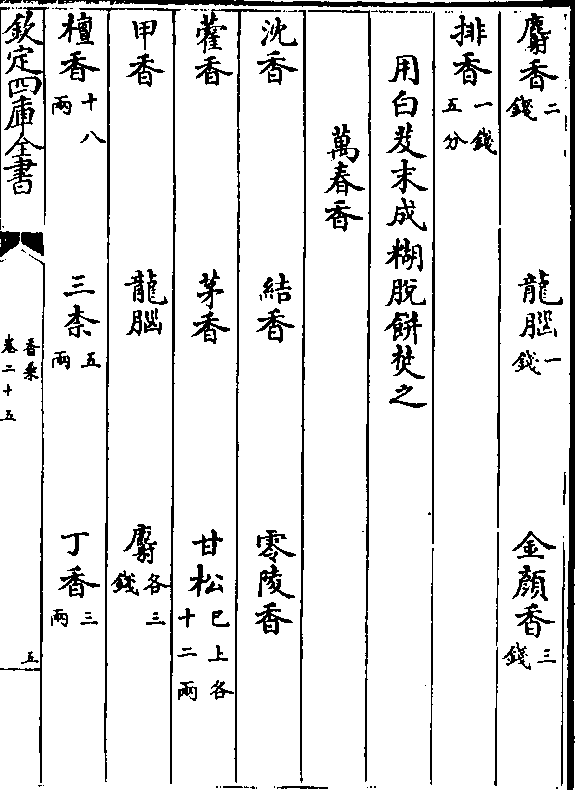 麝香二錢 龍腦一錢 金顔香三錢
排香一錢五分
用白芨末成糊脫餅焚之
萬春香
沈香 結香 零陵香
藿香 茅香 甘松已上各十二兩
甲香 龍腦 麝各三錢
檀香十八兩 三柰五兩 丁香三兩
欽定四庫全書 香乘 卷二十五 五